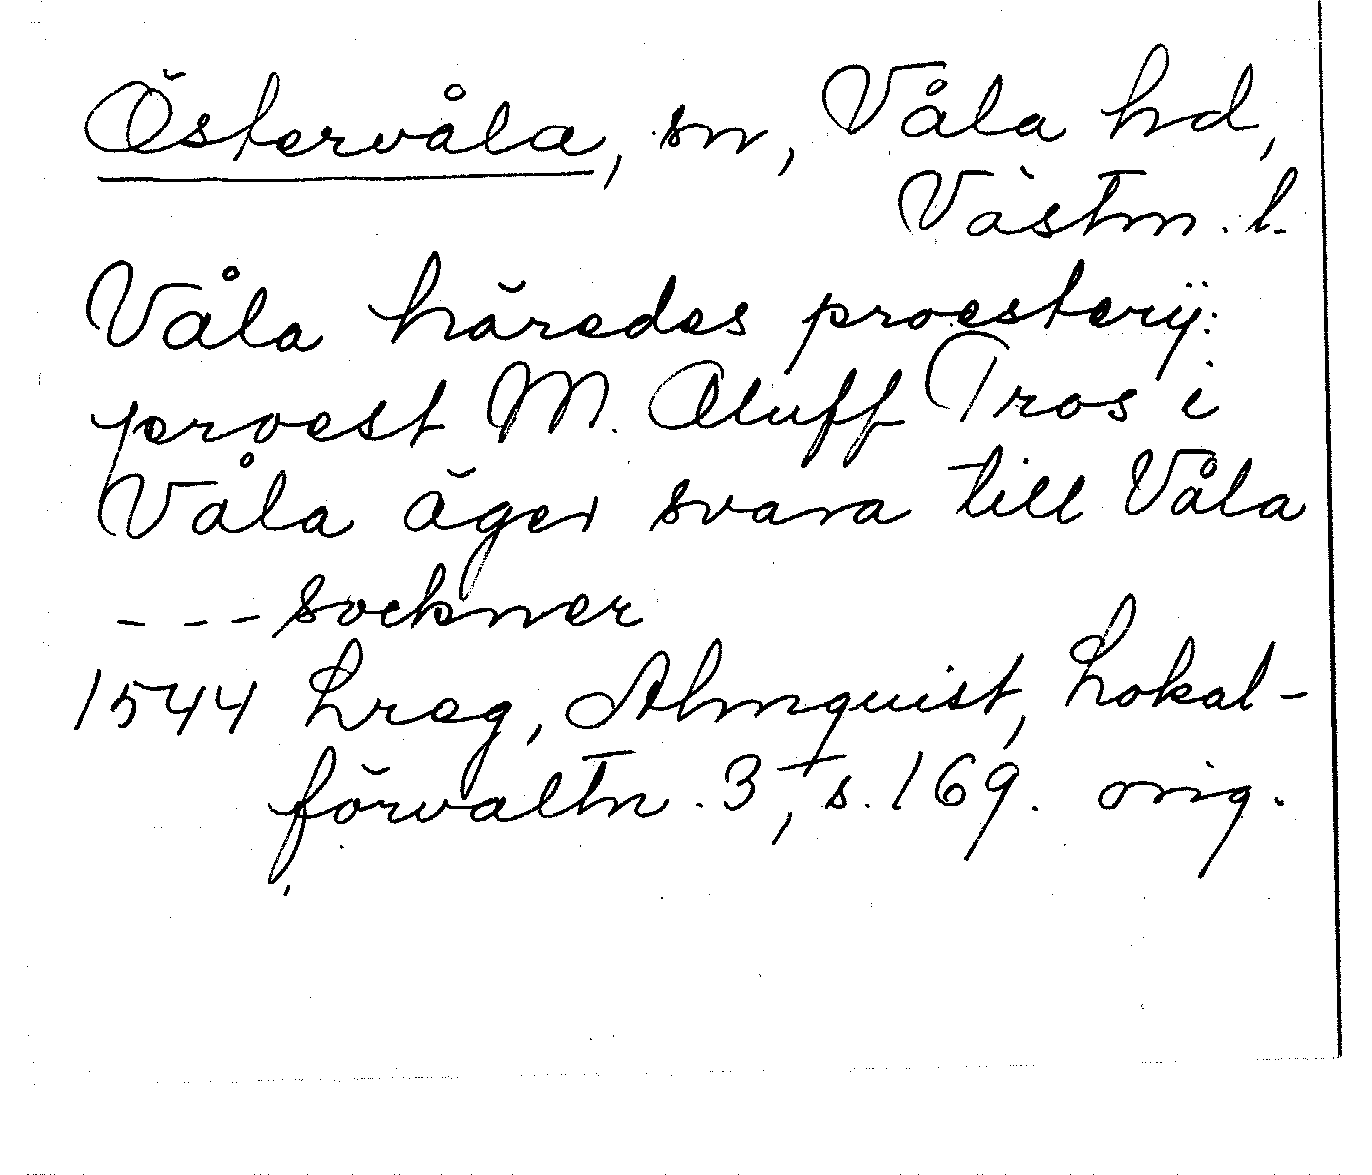 Östervåla, sn, Våla hd,
Västm. l.
Våla häredes proesterij:
proest M. Oluff Tros i
Våla äger svara till Våla
--- sockner
1544 Lreg, Almquist, Lokal-
förvaltn. 3, s. 169. orig.